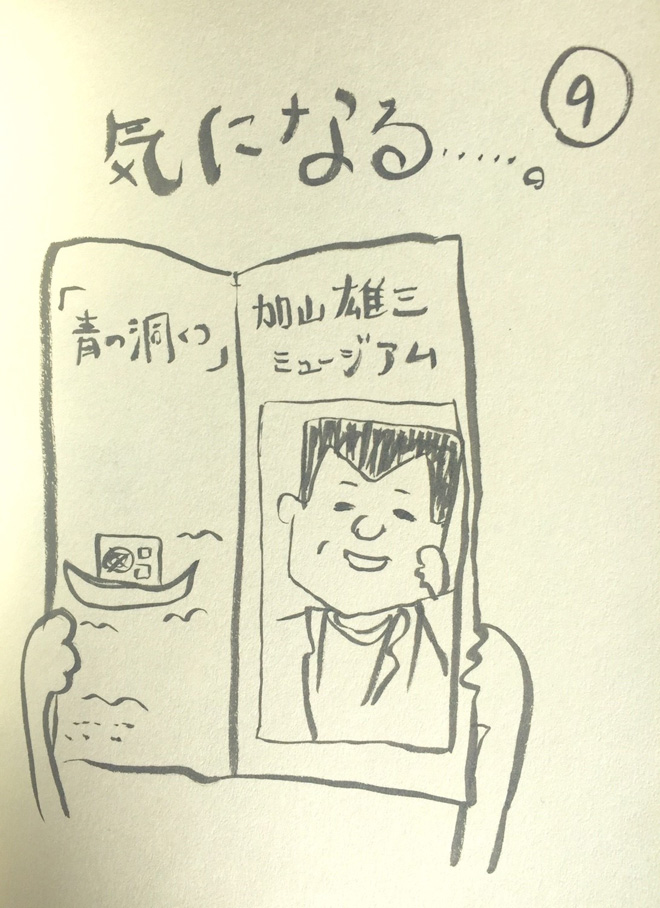 ⑨
気になる……。
「青の洞くつ」
加山雄三
ミュージアム